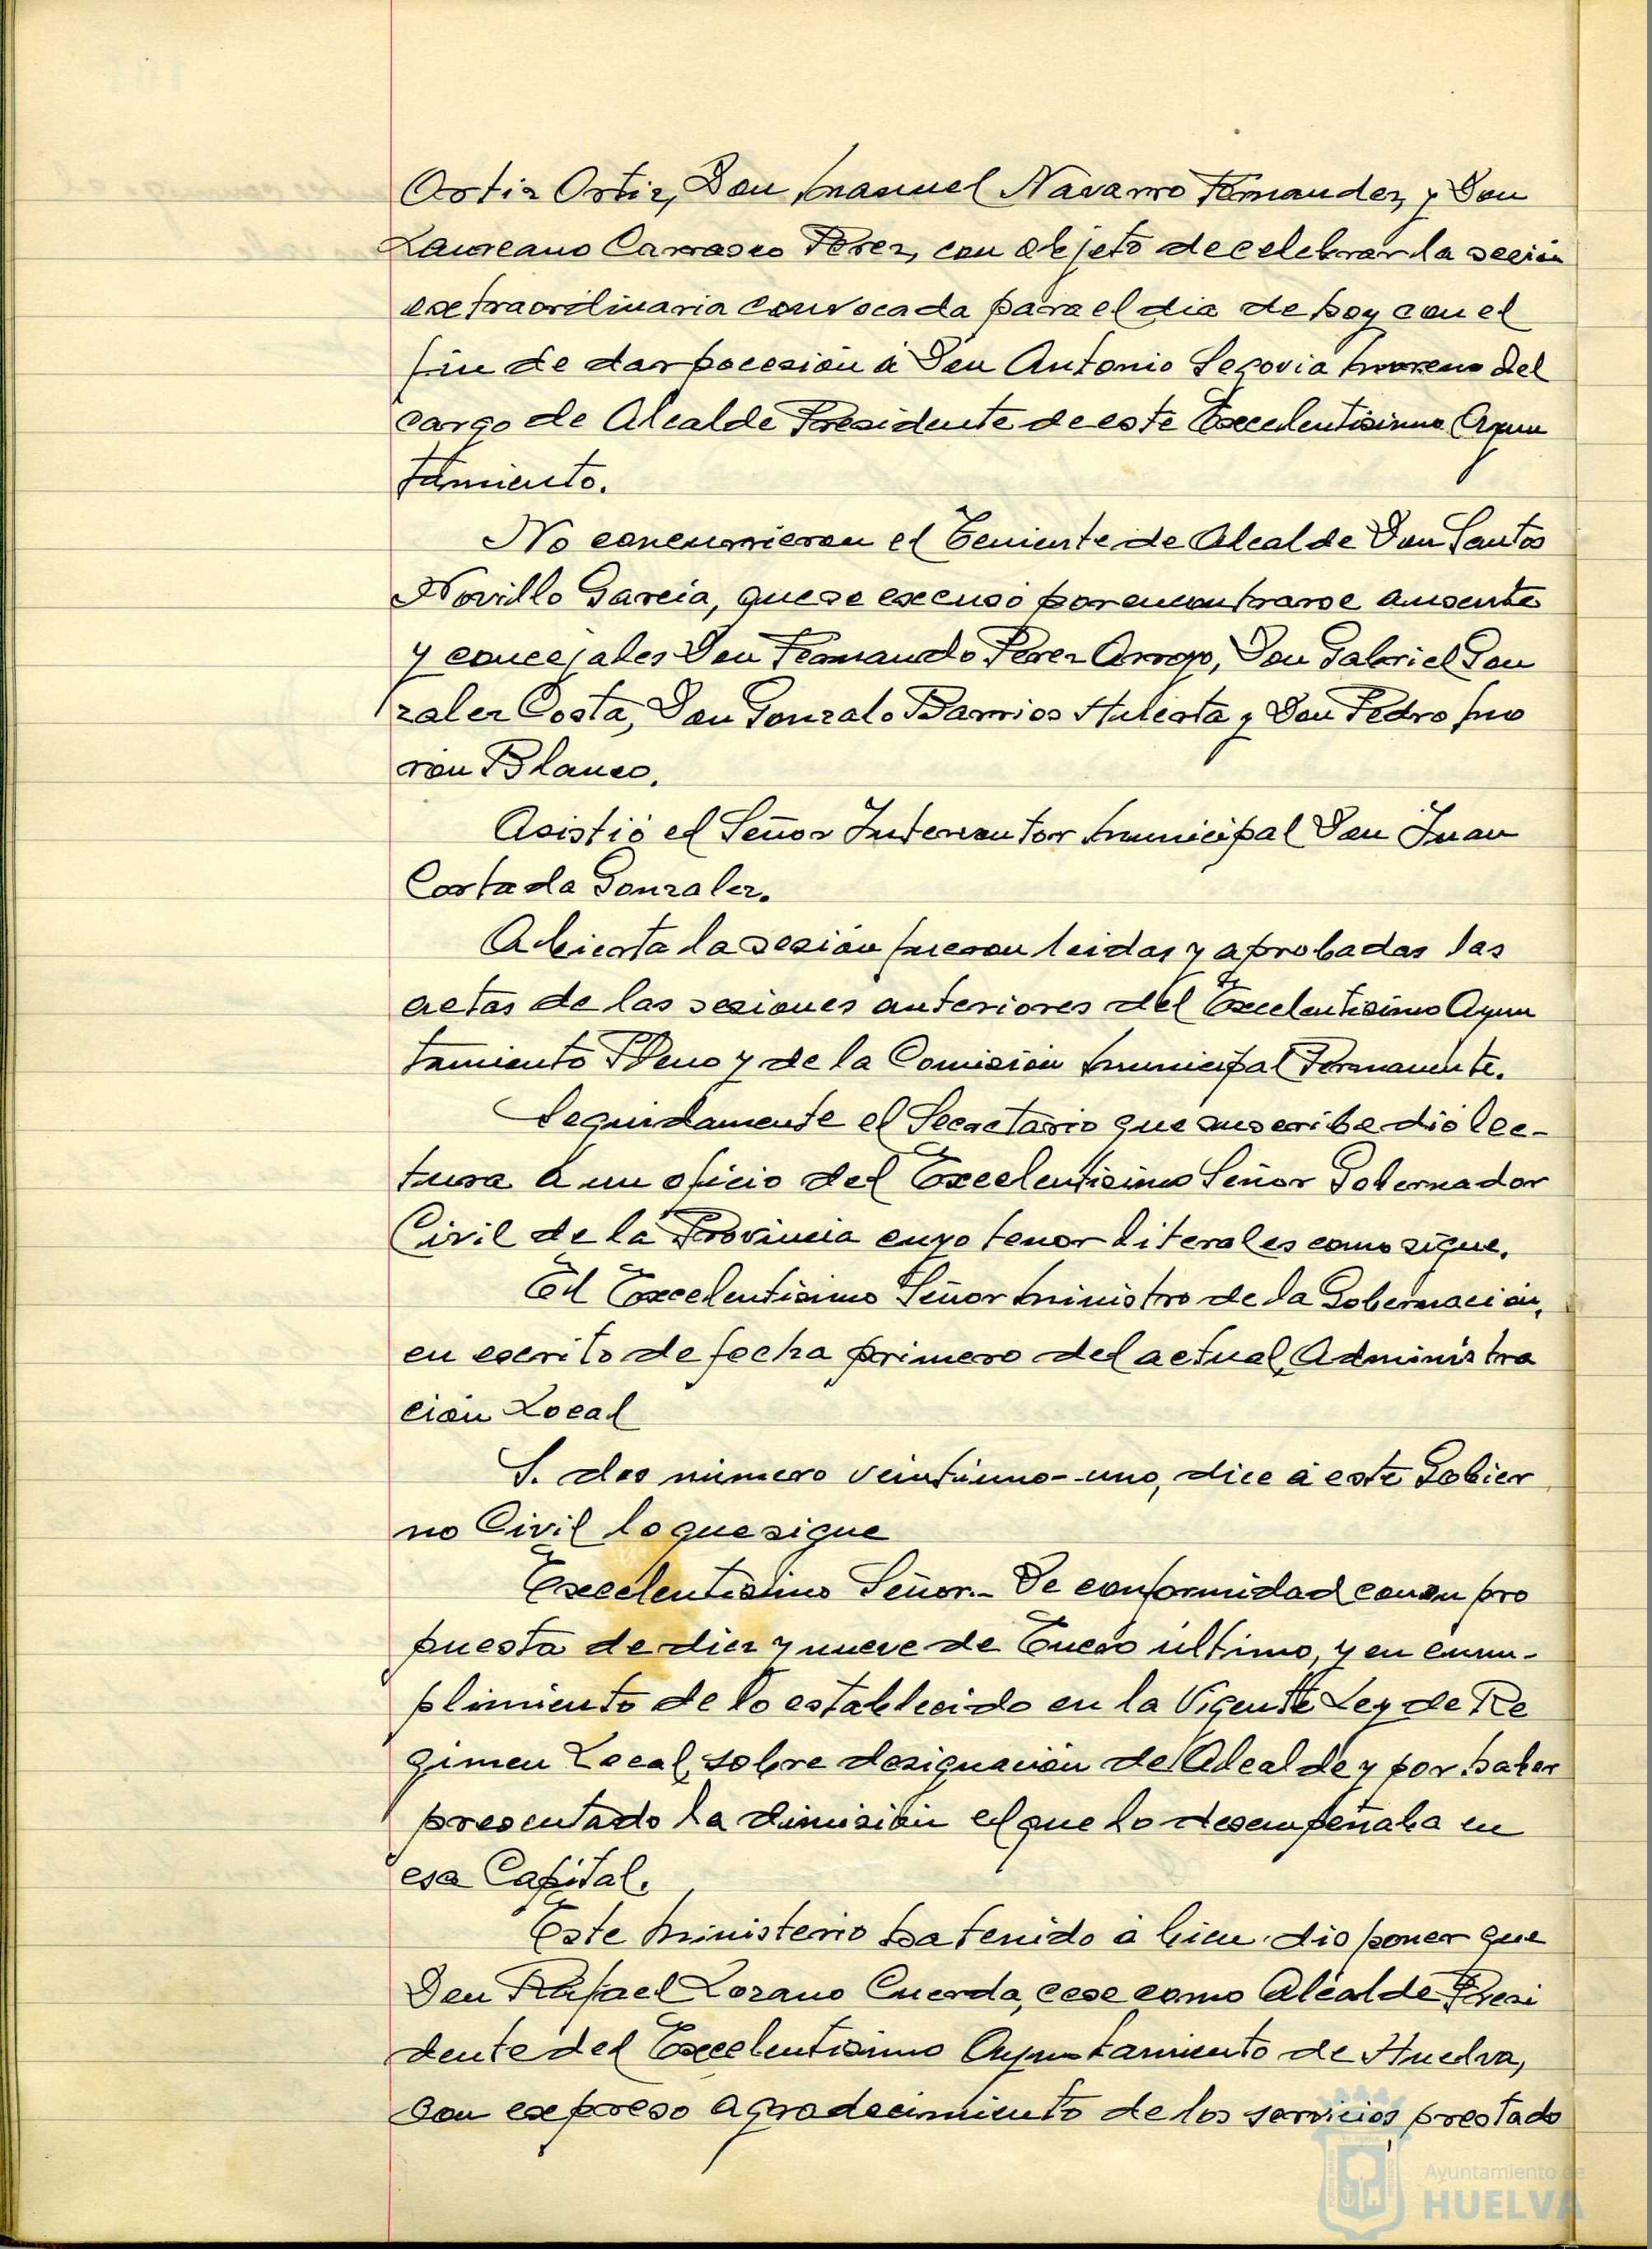 Ortiz Ortiz, Don Manuel Navarro Fernandez, y Don
Laureano Carrasco Perez, con objeto de celebrar la sesión
extraordinaria convocada para el dia de hoy con el
fin de dar pocesión a Don Antonio Segovia Moreno del
cargo de Alcalde Presidente de este Excelentisimo Ayun
tamiento.
No concurrieron el Teniente de Alcalde Don Santos
Novillo Garcia, que se excusó por encontrarse ausente
y concejales Don Fernando Perez Arroyo, Don Gabriel Gon
zalez Costa, Don Gonzalo Barrios Huberta y Don Pedro Mo
ron Blanco.
Asistió el Señor Interventor Municipal Don Juan
Cortada Gonzalez.
Abierta la sesión fueron leidas y aprobadas las
actas de las sesiones anteriores del Excelentisimo Ayun
tamiento Pleno y de la Comisión Municipal Permanente.
Seguidamente el Secretario que suscribe dió lec-
tura a un oficio del Excelentisimo Señor Gobernador
Civil de la Provincia cuyo tenor literal es como sigue.
El Excelentisimo Señor Ministro de la Gobernación,
en escrito de fecha primero del actual, Administra
ción Local
S. dos número veintiuno-uno, dice á este Gobier
no Civil lo que sigue
Excelentisimo Señor.- De conformidad con su pro
puesta de diez y nueve de Enero último, y en cum-
plimiento de lo establecido en la Vigente Ley de Re
gimen Local, sobre designación de Alcalde y por haber
presentado la dimisión el que lo desempeñaba en
esa Capital.
Este Ministerio ha tenido á bien disponer que
Don Rafael Lozano Cuerda, cese como Alcalde Presi
dente del Excelentisimo Ayuntamiento de Huelva,
con expreso agradecimiento de los servicios prestado
Ayuntamiento de
HUELVA